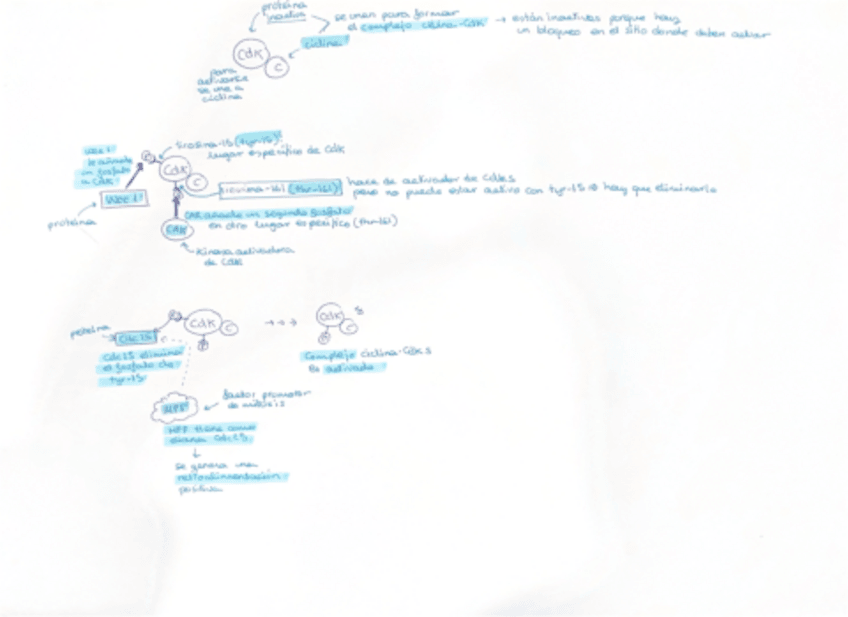 proteína
inactiva
se unen para formar
el complejo ciclina-Cdk → están inactivas porque hay
un bloqueo en el sitio donde deben activar
ciclina
Cdk
C
para
activarse
se une a
ciclina
Wee 1
le añade
un fosfato
a Cdk
P
tirosina-15 (tyr-15)
lugar específico de Cdk
Cdk
C
Wee 1
proteína
(thr-161) hace de activador de Cdks
pero no puede estar activo con tyr-15 ⇒ hay que eliminarlo
P
CAK añade un segundo fosfato
en otro lugar específico (thr-161)
CAK
Kinasa activadora
de Cdk
proteína
Cdc25
P
Cdk
C
P
→→→
Cdk
C
P
Cdc25 elimina
el fosfato de
tyr-15
Complejo ciclina-Cdks
es activado
MPF
factor promotor
de mitosis
MPF tiene como
diana Cdc25
↓
se genera una
retroalimentación
positiva